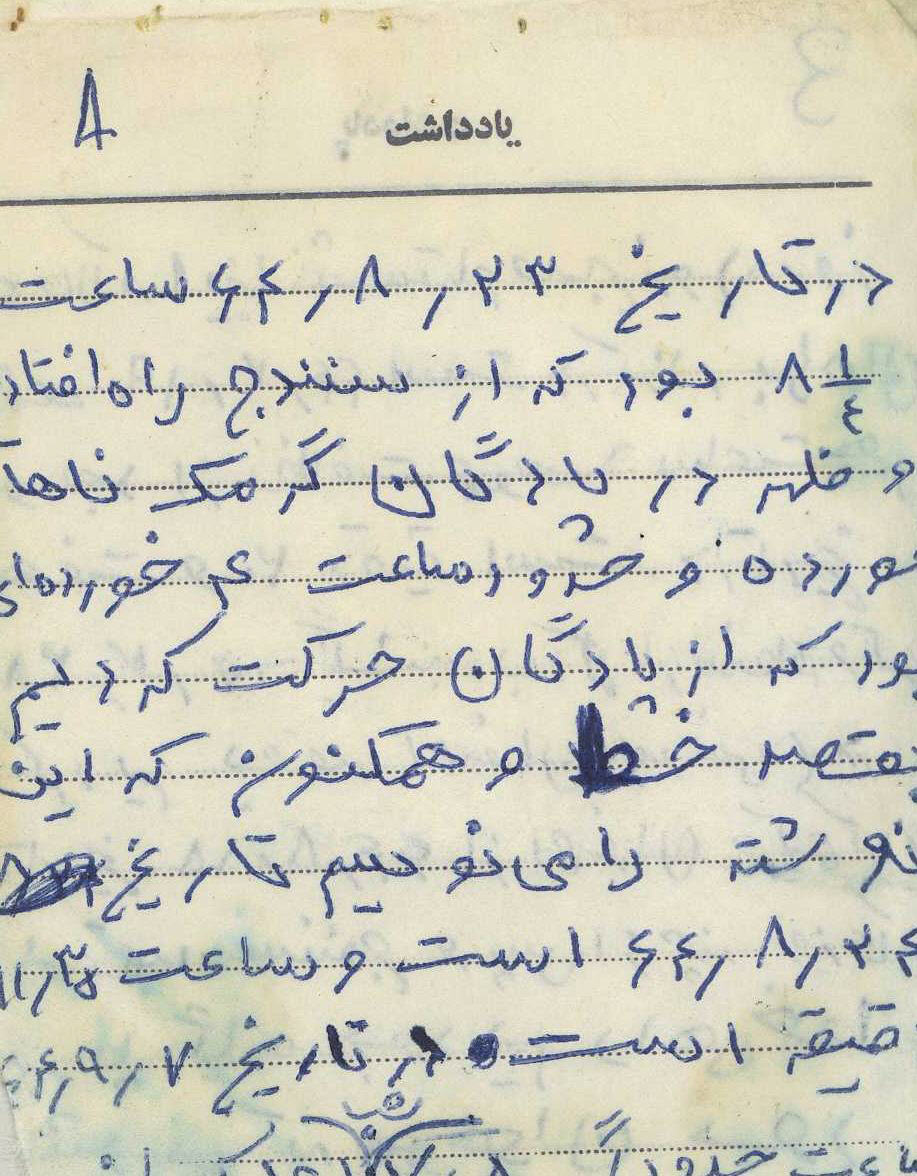 ۸
یادداشت
در تاریخ ۲۳ ر ۸ ر ۶۴ ساعت
۸ ۱/۴ بود که از سنندج راه افتاد
و ظهر در پادگان گرمک ناها
خورده و حدود ساعت ۴ خورده‌ای
بود که از پادگان حرکت کردیم
بمقصد خط و همکنون که این
نوشته را می‌نویسم تاریخ
۲۴ ر ۸ ر ۶۴ است و ساعت ۱۱٫۳۵
دقیقه است. در تاریخ ۷ ر ۹ ر ۶۴